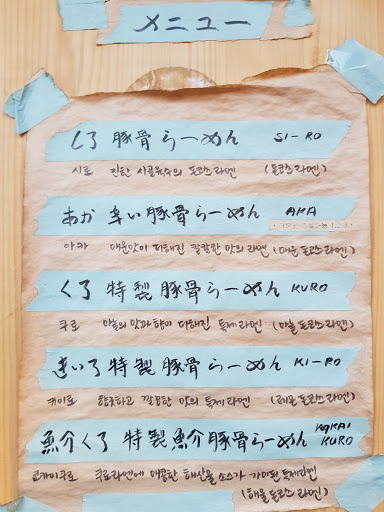 メニュー
しろ 豚骨らーめん SI-RO
시로 진한 사골육수의 돈코츠라멘 (돈코츠라멘)
あか 辛い豚骨らーめん AKA
아카 매운맛이 더해진 칼칼한 맛의 라멘 (매운 돈코츠라멘)
くろ 特製豚骨らーめん KURO
쿠로 마늘의 맛과 향이 더해진 특제라멘 (마늘 돈코츠라멘)
きいろ 特製豚骨らーめん KI-RO
키이로 향긋하고 깔끔한 맛의 특제라멘 (레몬 돈코츠라멘)
魚介くろ 特製魚介豚骨らーめん KURO
쿠로라멘에 매콤한 해산물 소스가 가미된 특제라멘
(해물 돈코츠라멘)